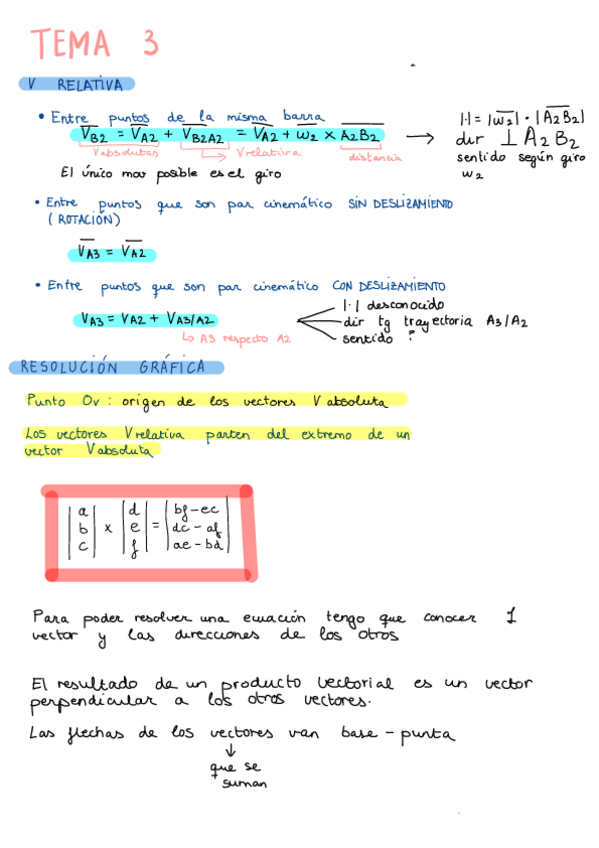 TEMA 3
V RELATIVA
• Entre puntos de la misma barra
V̅B2 = V̅A2 + V̅B2A2 = V̅A2 + w̅2 × A̅2̅B̅2̅ → |·| = |w̅2| · |A̅2̅B̅2̅|
Vabsolutas Vrelativa distancia dir ⊥ A2B2
sentido según giro
w2
El único mov posible es el giro
• Entre puntos que son par cinemático SIN DESLIZAMIENTO
(ROTACIÓN)
V̅A3 = V̅A2
• Entre puntos que son par cinemático CON DESLIZAMIENTO
VA3 = VA2 + VA3/A2
↳ A3 respecto A2
|·| desconocido
dir tg trayectoria A3/A2
sentido ?
RESOLUCIÓN GRÁFICA
Punto Ov : origen de los vectores V absoluta
Los vectores Vrelativa parten del extremo de un
vector Vabsoluta
|a| |d| |bf-ec|
|b| × |e| = |dc-af|
|c| |f| |ae-bd|
Para poder resolver una ecuación tengo que conocer 1
vector y las direcciones de los otros
El resultado de un producto vectorial es un vector
perpendicular a los otros vectores.
Las flechas de los vectores van base - punta
↓
que se
suman